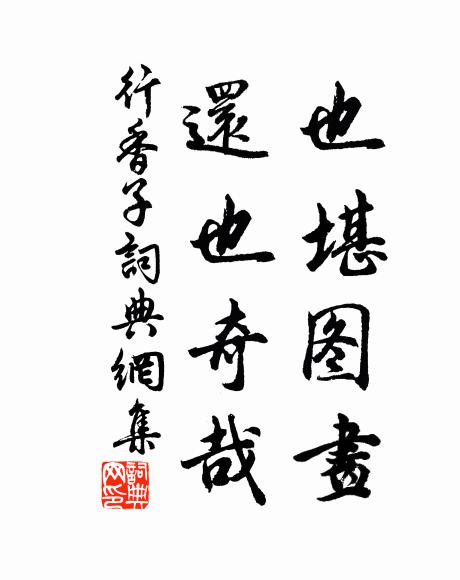 也堪图畫
還也奇哉
行香子詞典網集
詞典
网印